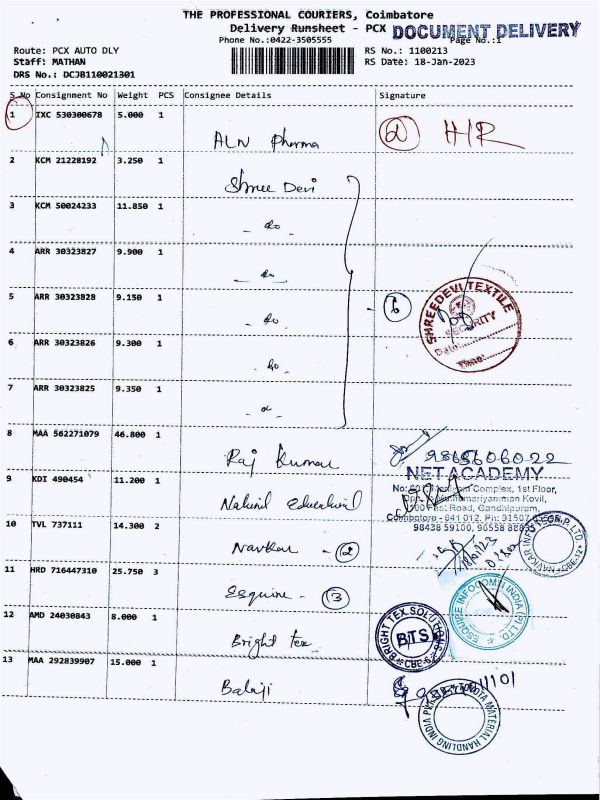 THE PROFESSIONAL COURIERS, Coimbatore
Delivery Runsheet - PCX DOCUMENT DELIVERY
Phone No.:0422-3505555 Page No.:1
Route: PCX AUTO DLY RS No.: 1100213
Staff: MATHAN RS Date: 18-Jan-2023
DRS No.: DCJB110021301
S.No Consignment No Weight PCS Consignee Details Signature
1 IXC 530300678 5.000 1
ALN Pharma H/R
2 KCM 21228192 3.250 1
Shree Devi
3 KCM 50024233 11.850 1
- do -
4 ARR 30323827 9.900 1
- do -
5 ARR 30323828 9.150 1
- do - 6
SHREEDEVI TEXTILE
SECURITY
Date:
Time:
6 ARR 30323826 9.300 1
- do -
7 ARR 30323825 9.350 1
8 MAA 562271079 46.800 1
Raj Kumar 9865606022
NET ACADEMY
Complex, 1st Floor,
Kovil,
100 Feet Road, Gandhipuram,
Coimbatore - 641 012. Ph: 91507
98438 59100, 96558 88833
9 KDI 490454 11.200 1
Educational
10 TVL 737111 14.300 2
Navkar - 2
18/01/23
NAVKAR INFOTECH P. LTD.
CBE-12
11 HRD 716447310 25.750 3
Esquire - 3
ESQUIRE INFOCOM INDIA (P) LTD.
12 AMD 24030843 8.000 1
Bright tex
BRIGHT TEX SOLUTIONS
BTS
CBE-6
13 MAA 292839907 15.000 1
Balaji
MATERIAL HANDLING INDIA PVT